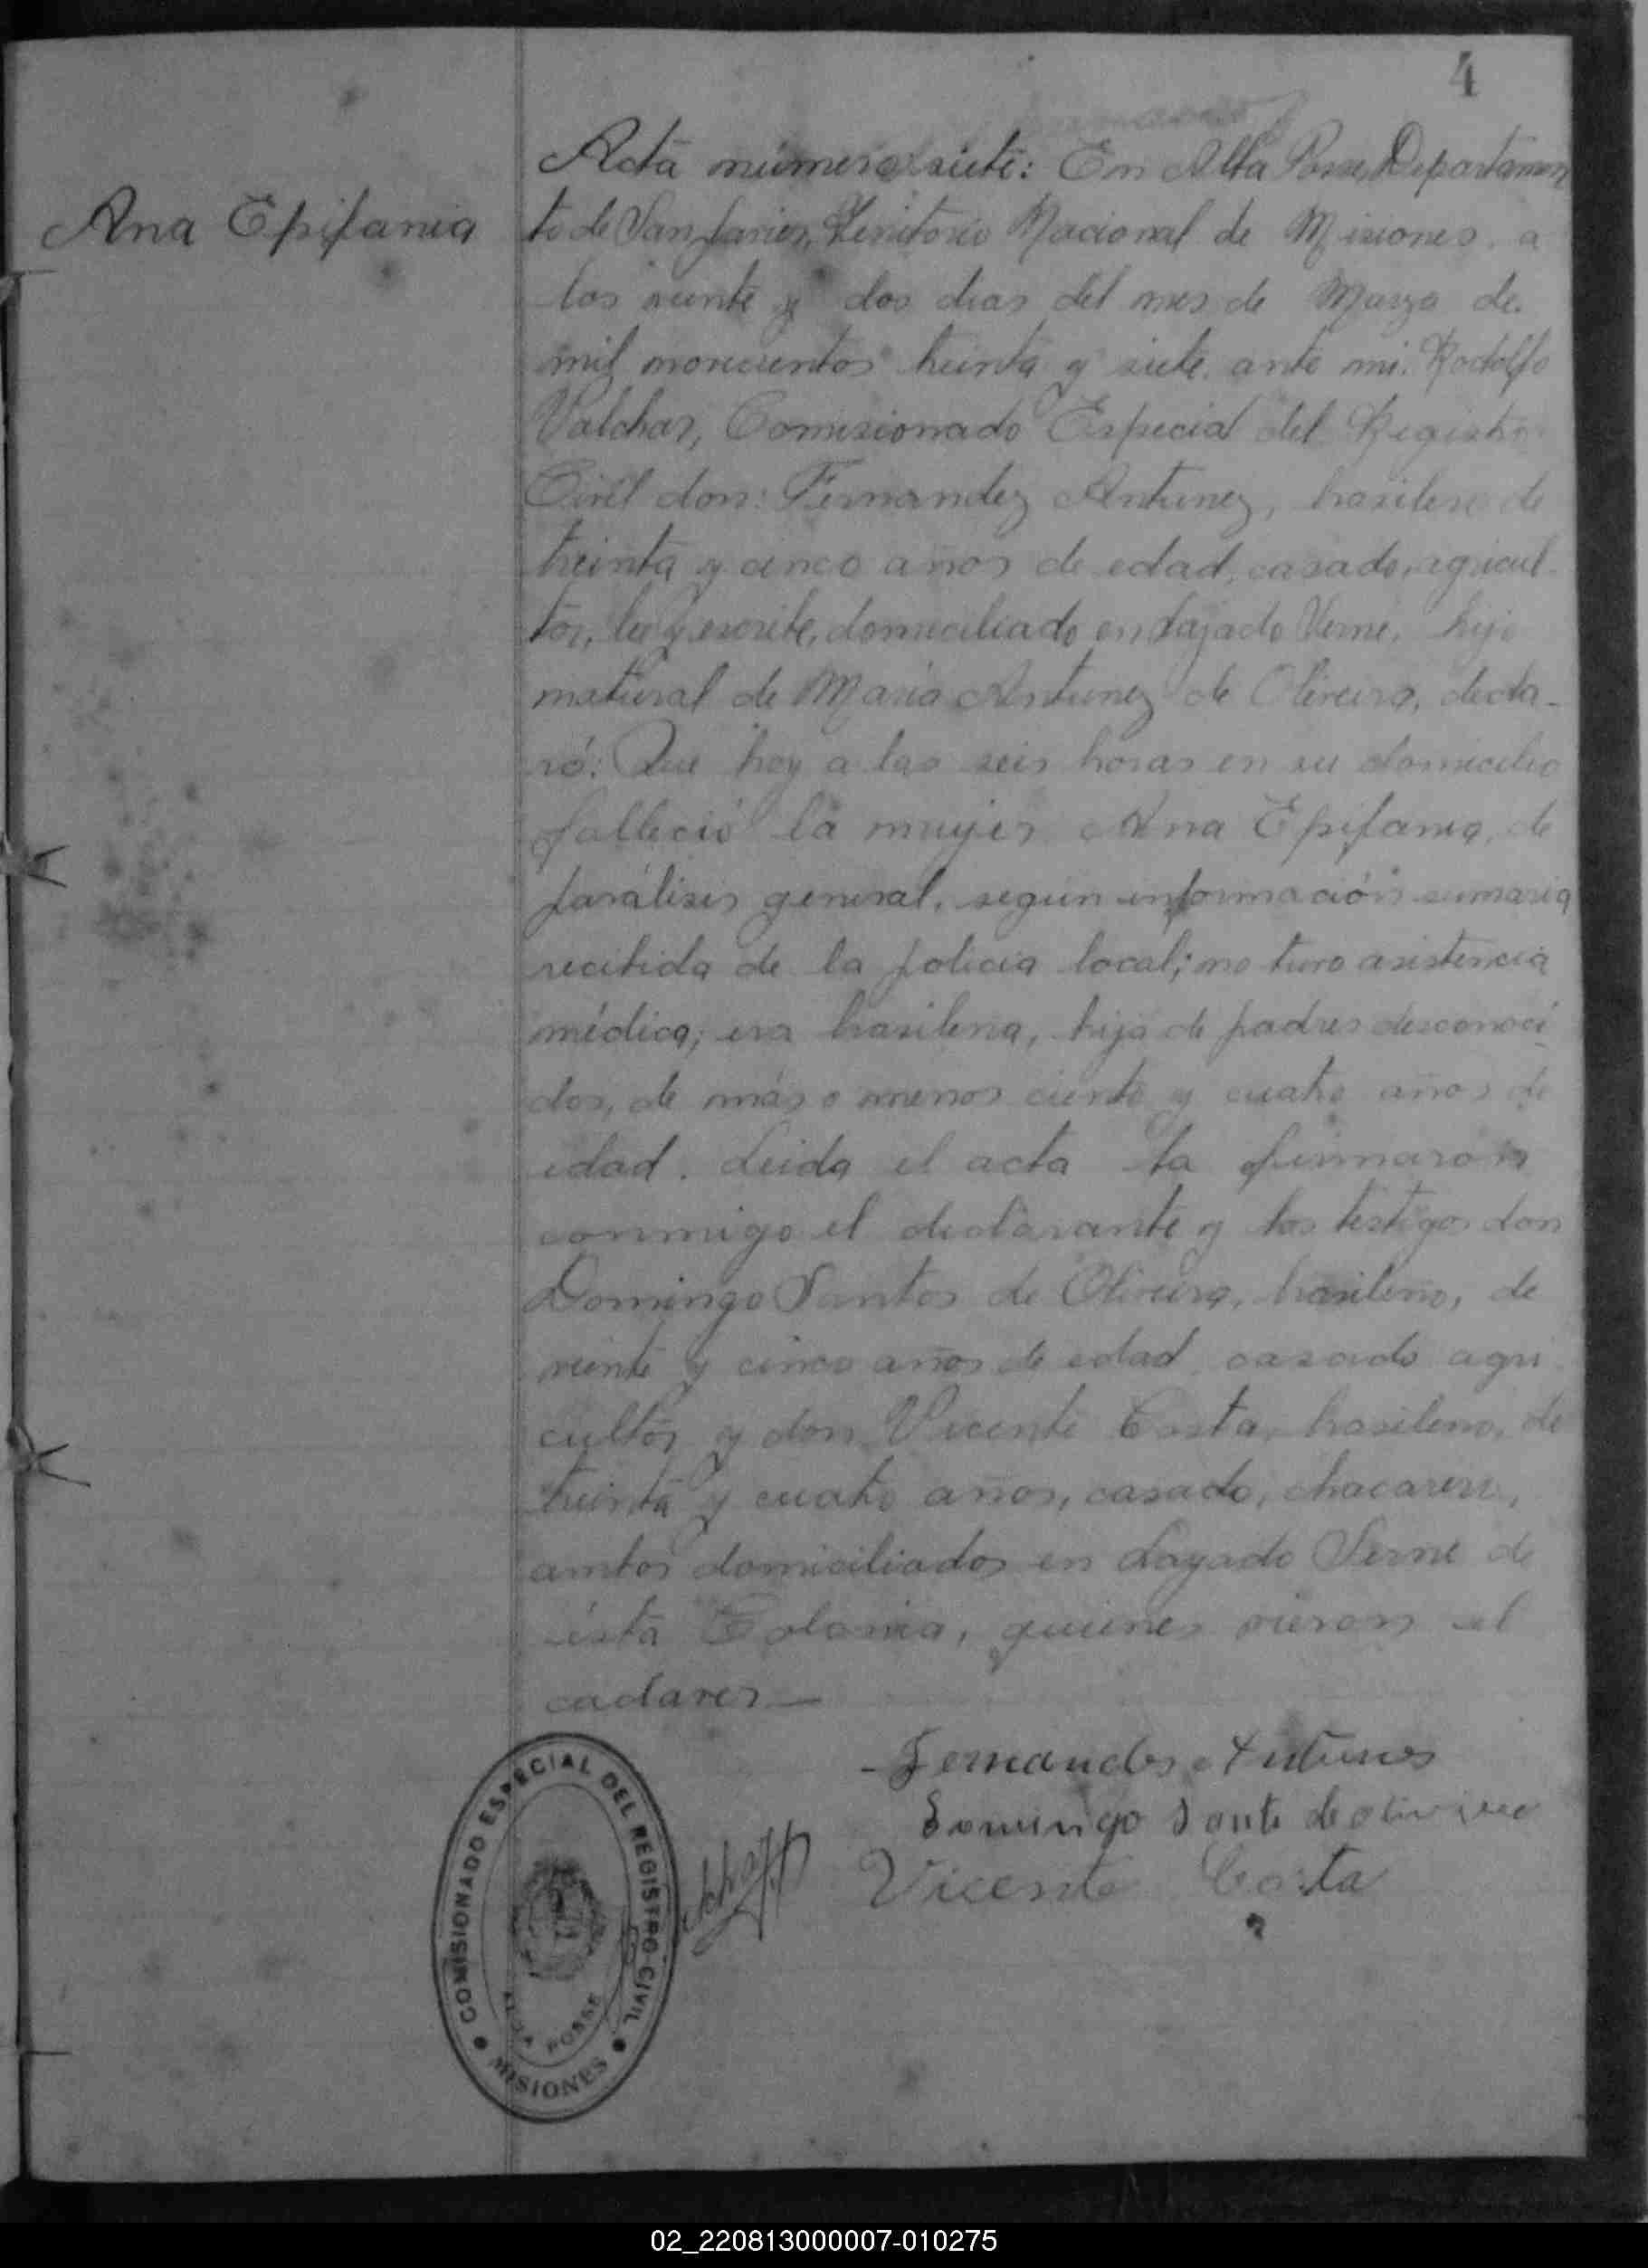 4
Ana Epifania
Acta número siete: En Alba Posse, Departamen
to de San Javier, Territorio Nacional de Misiones, a
los veinte y dos dias del mes de Marzo de
mil novecientos treinta y siete, ante mi. Rodolfo
Valchar, Comisionado Especial del Registro
Civil don: Fernandez Antunez, brasilero de
treinta y cinco años de edad, casado, agricul-
tor, lee y escribe, domiciliado en Lajado Verne, hijo
natural de Maria Antunez de Oliveira, decla-
ró: Que hoy a las seis horas en su domicilio
falleció la mujer Ana Epifania, de
parálisis general, según información sumaria
recibida de la policia local; no tuvo asistencia
médica; era brasilena, hija de padres desconoci
dos, de más o menos ciento y cuatro años de
edad. Leida el acta la firmaron
conmigo el declarante y los testigos don
Domingo Santos de Oliveira, brasileno, de
veinte y cinco años de edad, casado agri
cultor y don Vicente Costa, brasileno, de
treinta y cuatro años, casado, chacarero,
ambos domiciliados en Lagado Serne de
ésta Colonia, quienes vieron el
cadaver—
Fernandes Antunes
Domingo Sante de oliveira
Vicente Costa
COMISIONADO ESPECIAL DEL REGISTRO CIVIL
ALBA POSSE
MISIONES
02_220813000007-010275